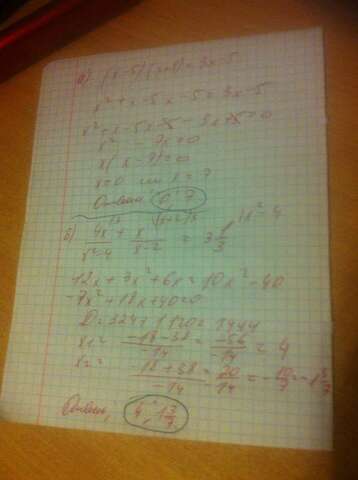 а) (x-5)(x+1)=3x-5
x²+x-5x-5=3x-5
x²+x-5x-5-3x+5=0
x² -7x=0
x(x-7)=0
x=0 или x=7
Ответ: 0; 7
б) 4x/x²-4 + x/x-2 = 3 1/3
12x+3x²+6x=10x²-40
-7x²+18x+40=0
D=324+1120=1444
x1= -18-38/-14 = -56/-14 = 4
x2= -18+38/-14 = 20/14 = -10/7 = -1 3/7
Ответ: 4; -1 3/7